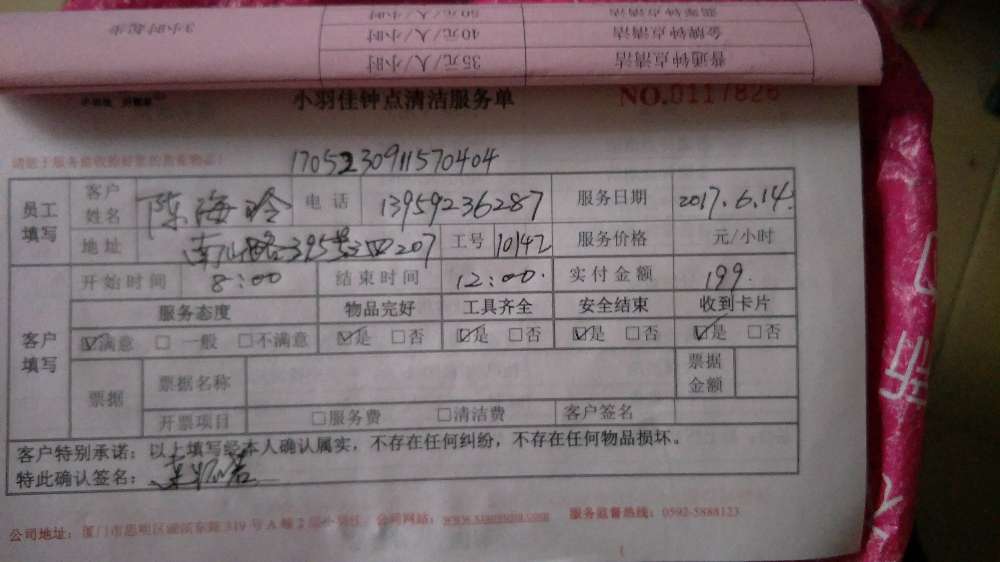 3小时起步
50元/人/小时
40元/人/小时 金牌钟点清洁
35元/人/小时 普通钟点清洁
小羽佳钟点清洁服务单 NO.0117826
1705230911570404
员工填写 客户姓名 陈海玲 电话 13959236287 服务日期 2017.6.14.
地址 395 207 工号 10142 服务价格 元/小时
客户填写 开始时间 8:00 结束时间 12:00. 实付金额 199.
服务态度 物品完好 工具齐全 安全结束 收到卡片
☑满意 □一般 □不满意 ☑是 □否 ☑是 □否 ☑是 □否 ☑是 □否
票据 票据名称 票据金额
开票项目 □服务费 □清洁费 客户签名
客户特别承诺:以上填写经本人确认属实,不存在任何纠纷,不存在任何物品损坏。
特此确认签名:
公司地址:厦门市思明区 319号A幢2层 公司网站: 服务监督热线:0592-5888123